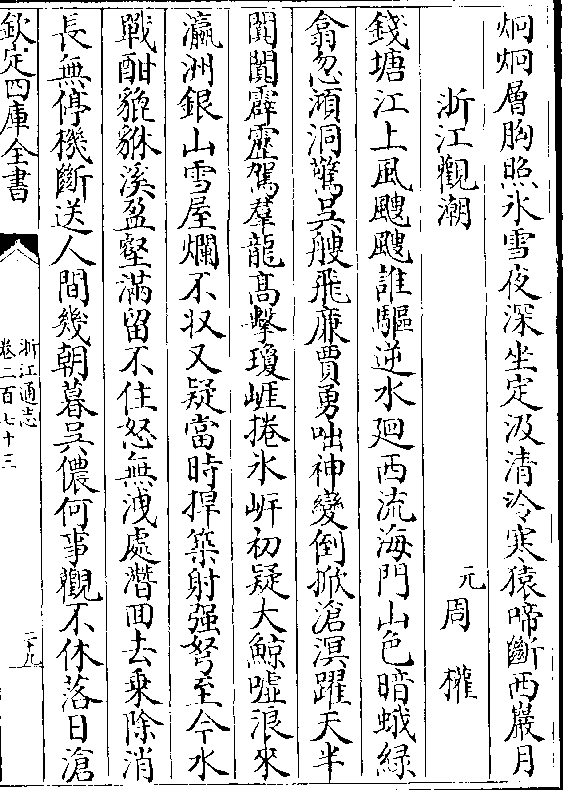 炯炯層胸照氷雪夜深坐定汲清泠寒猿啼斷西巖月
浙江觀潮
元周權
錢塘江上風颼颼誰驅逆水廻西流海門山色暗蛾緑
翕忽澒洞驚吳艘飛廉賈勇咄神變倒掀滄溟躍天半
闐闐霹靂駕羣龍髙擊瓊崕捲氷岸初疑大鯨嘘浪來
瀛洲銀山雪屋爛不収又疑當時捍築射强弩至今水
戰酣貔貅溪盈壑滿留不住怒無洩處潛回去乘除消
長無停機斷送人間幾朝暮吳儂何事觀不休落日滄
欽定四庫全書
浙江通志
卷二百七十三
二十九